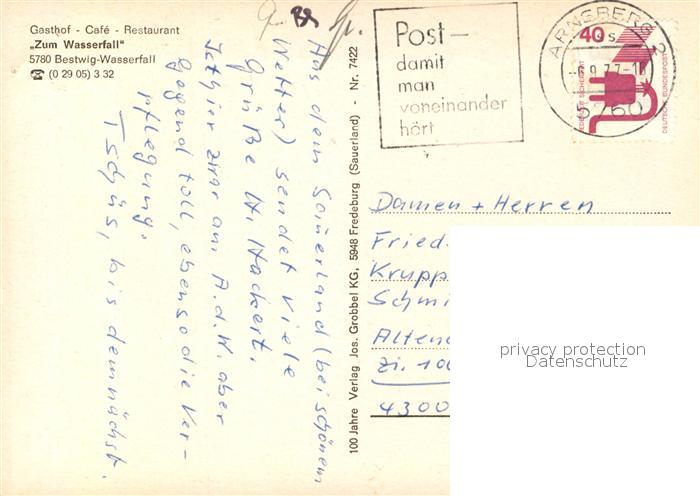 Gasthof - Café - Restaurant
„Zum Wasserfall"
5780 Bestwig-Wasserfall
☎ (0 29 05) 3 32
Aus dem Sauerland (bei schönem
Wetter) sendet viele
Grüße H. Hackert.
Ist hier zwar am A.d.W. aber
Gegend toll, ebenso die Ver-
pflegung.
Tschüs, bis demnächst.
100 Jahre Verlag Jos. Grobbel KG, 5948 Fredeburg (Sauerland) - Nr. 7422
Post -
damit
man
voneinander
hört
ARNSBERG 2
9.77-1
5760
40
DEUTSCHE BUNDESPOST
Damen + Herren
Fried.
Krupp
Schmi
Altend
Zi. 10
4300
privacy protection
Datenschutz